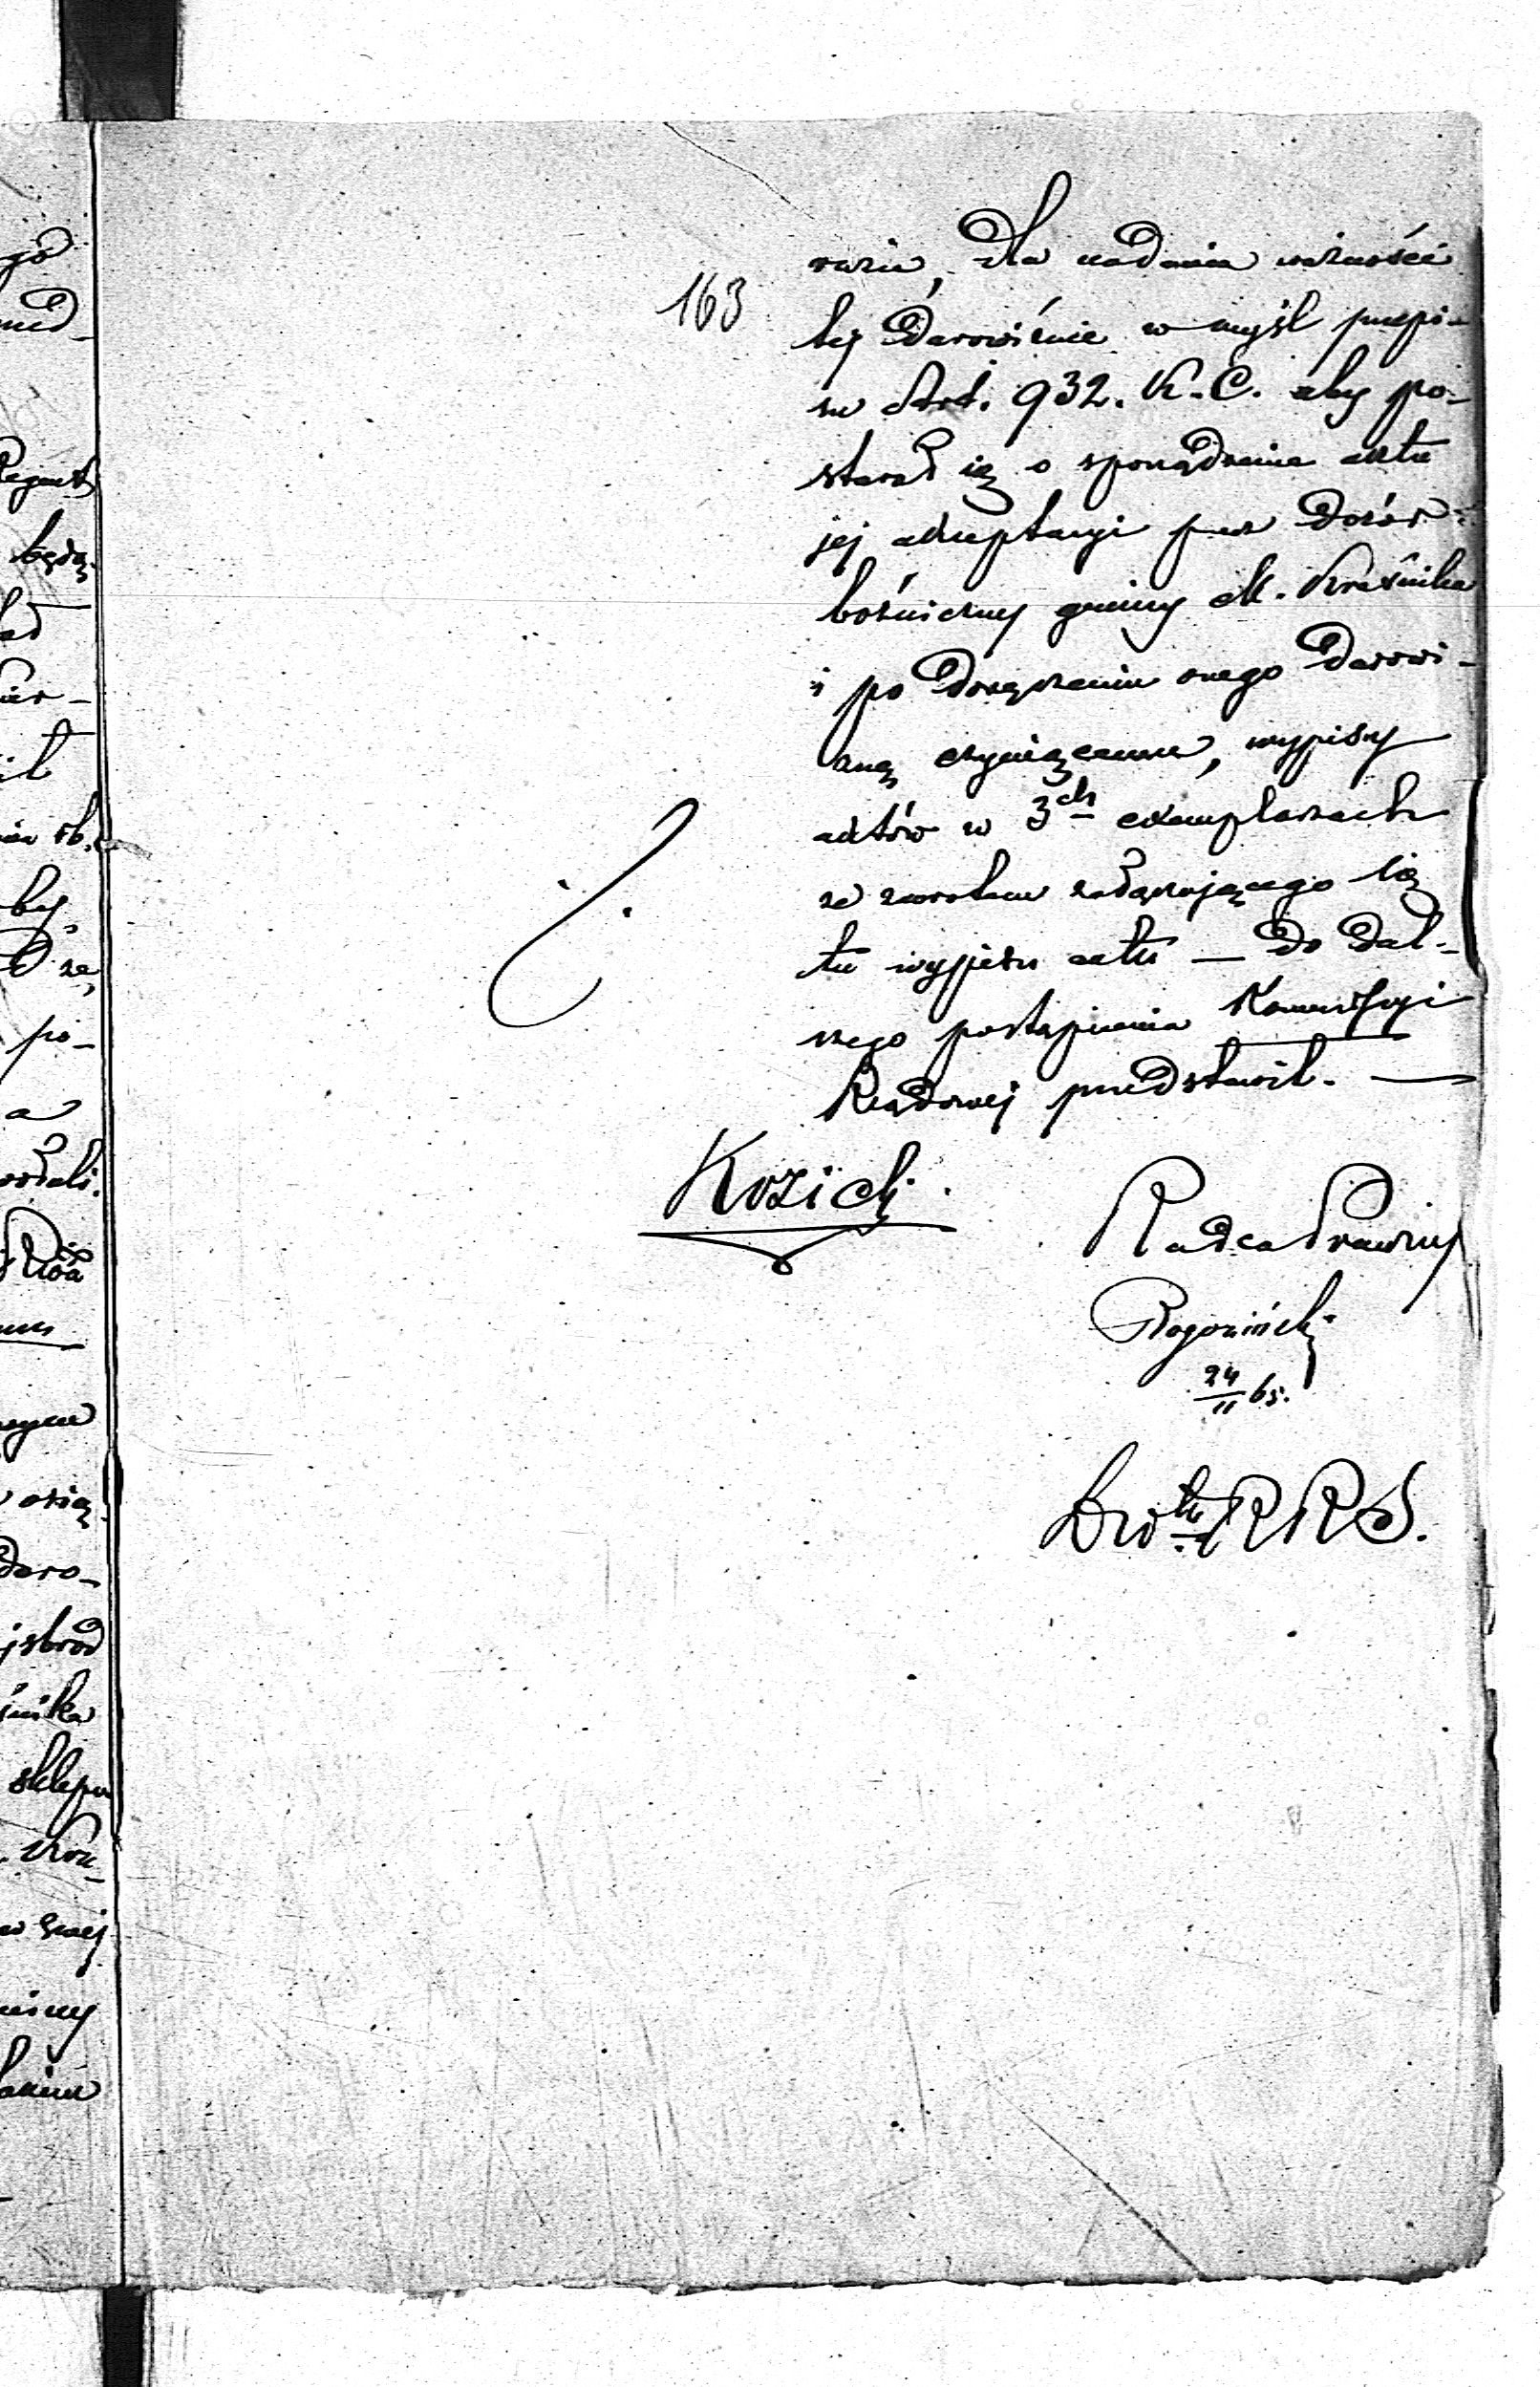 163
razie, dla nadania ważności
tej darowiźnie w myśl przepi-
su Art. 932. K. C. aby po-
starał się o sporządzenie aktu
jej akceptacyi przez Dozór
bożniczny gminy M. Kraśnika
i po doręczeniu onego darowi-
znę czyniącemu, wypisy
aktów w 3ch exemplarzach
ze zwrotem załączającego się
tu wypisu aktu — do dal-
szego postąpienia Kommissyi
Rządowej przedstawił. —
Kozicki
Radca Prawny
Rogoziński
24/11 65.
go
Regent
będą
ił
by
że
po-
a
daro-
śnika
sklepu